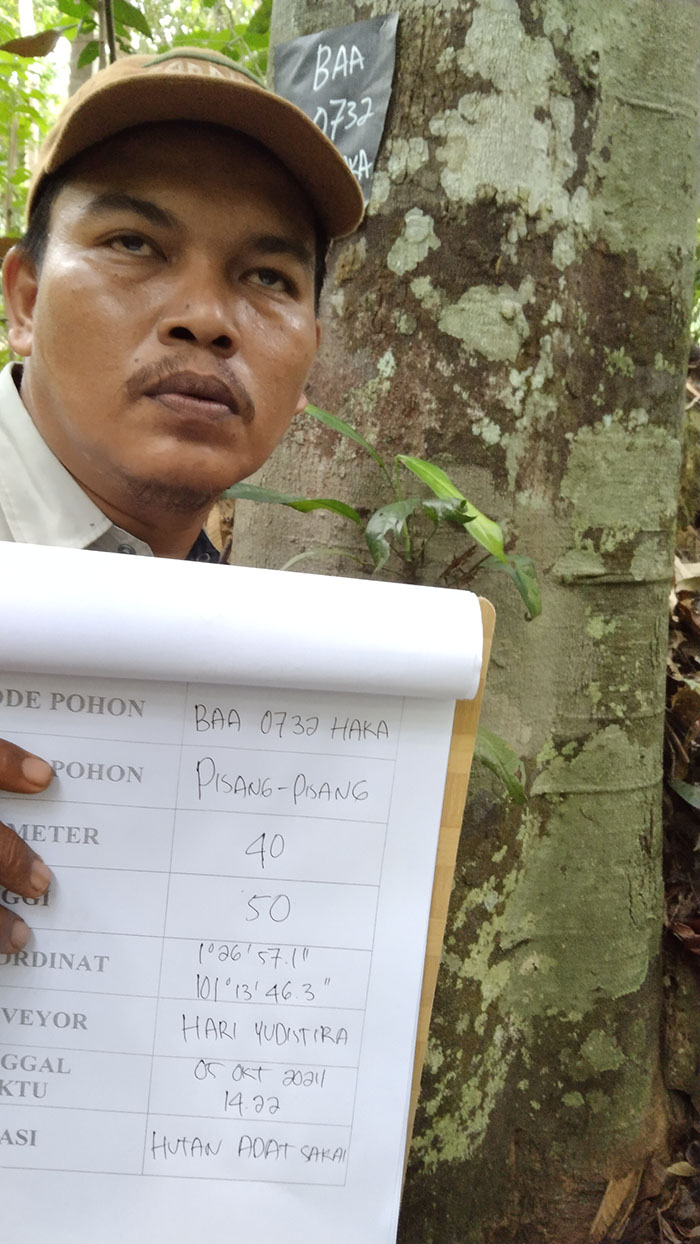 BAA
0732
HAKA
ODE POHON
BAA 0732 HAKA
POHON
PISANG-PISANG
METER
40
GGI
50
ORDINAT
1°26'57.1"
101°13'46.3"
VEYOR
HARI YUDISTIRA
GGAL
KTU
05 OKT 2021
14.22
ASI
HUTAN ADAT SAKAI